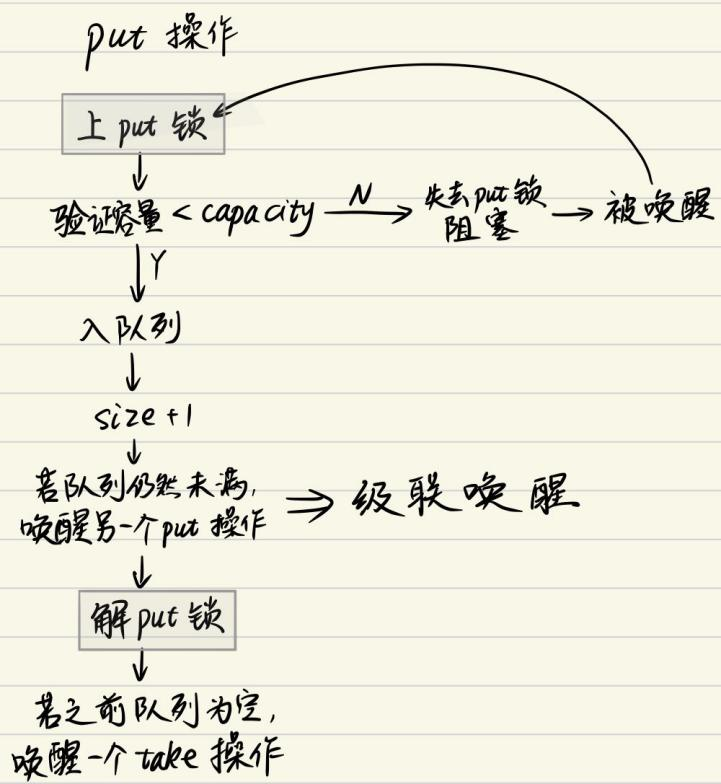 put 操作
上 put 锁
验证容量 < capacity
N
失去put锁
阻塞
被唤醒
Y
入队列
size +1
若队列仍然未满,
唤醒另一个put 操作
级联唤醒
解put锁
若之前队列为空,
唤醒一个 take 操作